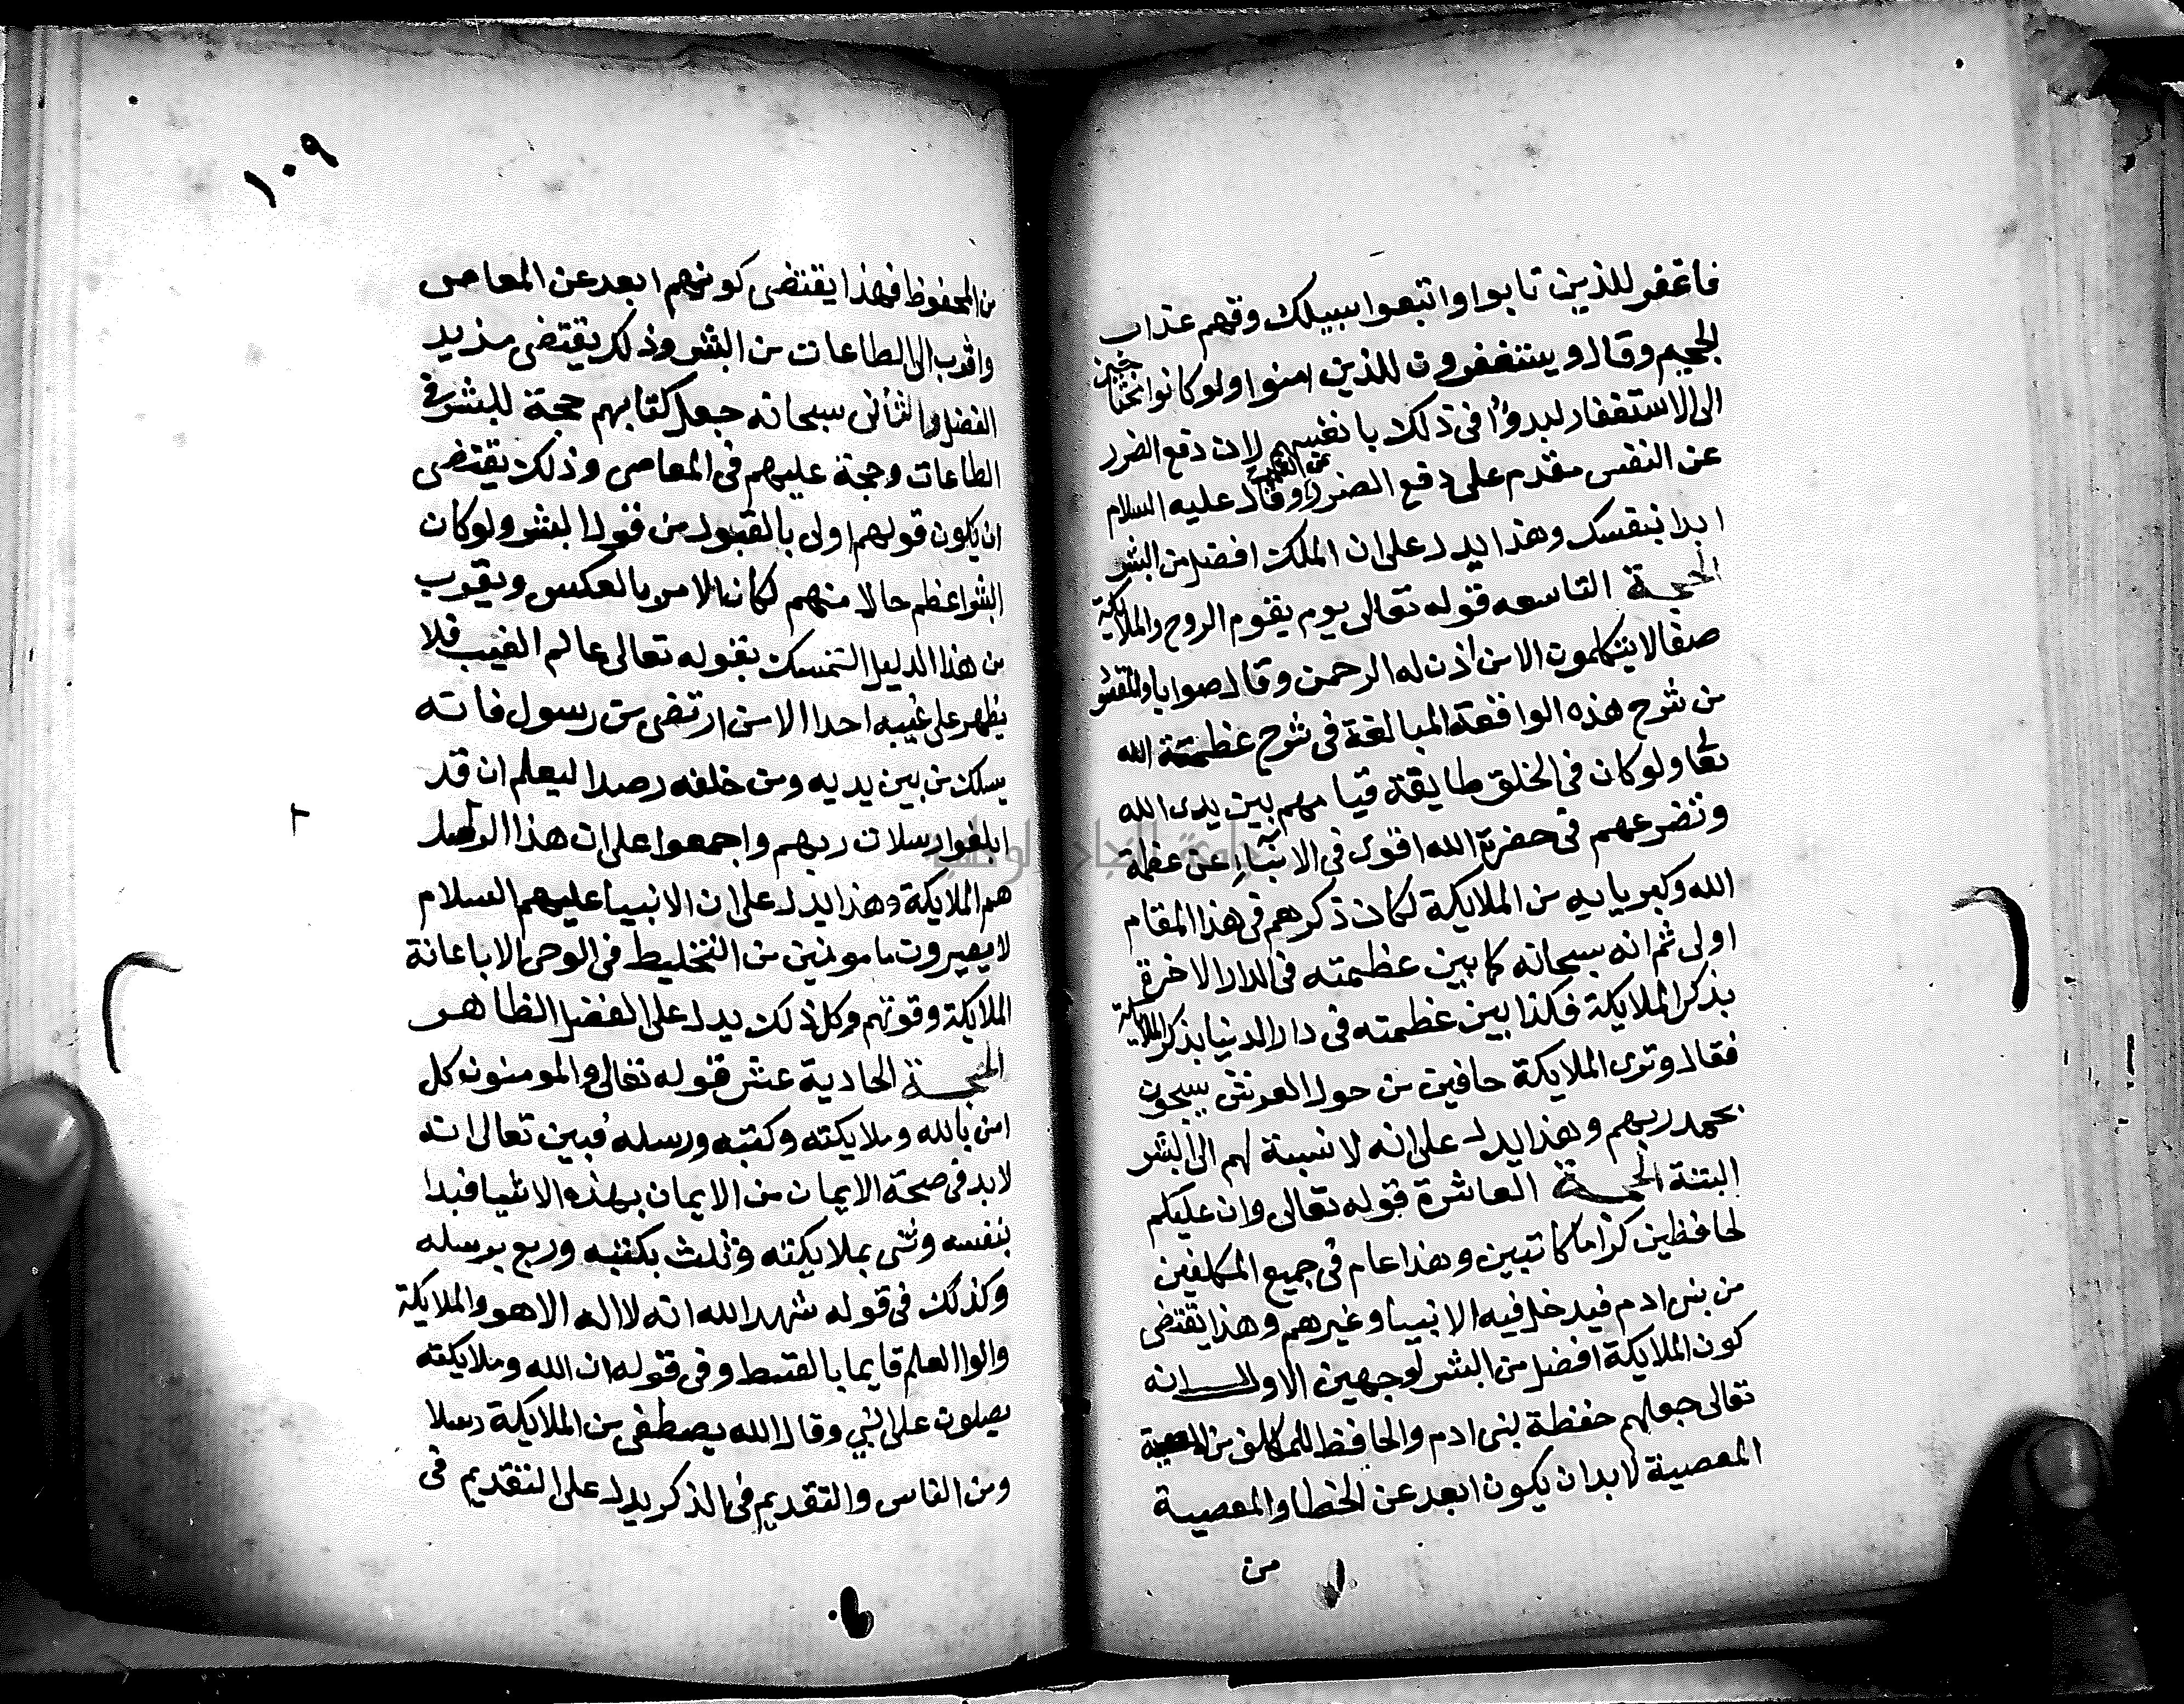 فاغفر للذين تابوا واتبعوا سبيلك وقهم عذاب
الجحيم وقال ويستغفرون للذين امنوا ولو كانوا محتاجين
الى الاستغفار لبدؤا في ذلك بانفسهم لان دفع الضرر
عن النفس مقدم على دفع الضرر عن الغير وقال عليه السلام
ابدا بنفسك وهذا يدل على ان الملك افضل من البشر
الحجة التاسعه قوله تعالى يوم يقوم الروح والملايكة
صفا لا يتكلمون الا من اذن له الرحمن وقال صوابا والمقصود
من شرح هذه الواقعة المبالغة في شرح عظمة الله
تعالى ولو كان في الخلق طايفة قيامهم بين يدى الله
وتضرعهم في حضرة الله اقوى في الانباء عن عظمة
الله وكبريايه من الملايكة لكان ذكرهم في هذا المقام
اولى ثم انه سبحانه كما بين عظمته في الدار الاخرة
بذكر الملايكة فكذا بين عظمته في دار الدنيا بذكر الملايكة
فقال وترى الملايكة حافين من حول العرش يسبحون
بحمد ربهم وهذا يدل على انه لا نسبة لهم الى البشر
البتة الحجة العاشرة قوله تعالى وان عليكم
لحافظين كراما كاتبين وهذا عام في جميع المكلفين
من بنى ادم فيدخل فيه الانبيا وغيرهم وهذا يقتضى
كون الملايكة افضل من البشر لوجهين الاول انه
تعالى جعلهم حفظة لبنى ادم والحافظ للمكلف من
المعصية لابد ان يكون ابعد عن الخطا والمعصية
من
١٠٩
من المحفوظ فهذا يقتضى كونهم ابعد عن المعاصى
واقرب الى الطاعات من البشر وذلك يقتضى مزيد
الفضل والثانى سبحانه جعل كتابهم حجة للبشر في
الطاعات وحجة عليهم في المعاصى وذلك يقتضى
ان يكون قولهم اولى بالقبول من قول البشر ولو كان
البشر اعظم حالا منهم لكان الامر بالعكس ويقرب
من هذا الدليل التمسك بقوله تعالى عالم الغيب فلا
يظهر على غيبه احدا الا من ارتضى من رسول فانه
يسلك من بين يديه ومن خلفه رصدا ليعلم ان قد
ابلغوا رسلات ربهم واجمعوا على ان هذا الرصد
هم الملايكة وهذا يدل على ان الانبيا عليهم السلام
لا يصيرون مامونين من التخليط في الوحى الا باعانة
الملايكة وقوتهم وكل ذلك يدل على الفضل الظاهر
الحجة الحادية عشر قوله تعالى والمومنون كل
امن بالله وملايكته وكتبه ورسله فبين تعالى انه
لابد في صحة الايمان من الايمان بهذه الاشيا فبدا
بنفسه وثنى بملايكته وثلث بكتبه وربع برسله
وكذلك في قوله شهد الله انه لا اله الا هو والملايكة
والوا العلم قايما بالقسط وفى قوله ان الله وملايكته
يصلون على النبي وقال الله يصطفى من الملايكة رسلا
ومن الناس والتقديم في الذكر يدل على التقديم في